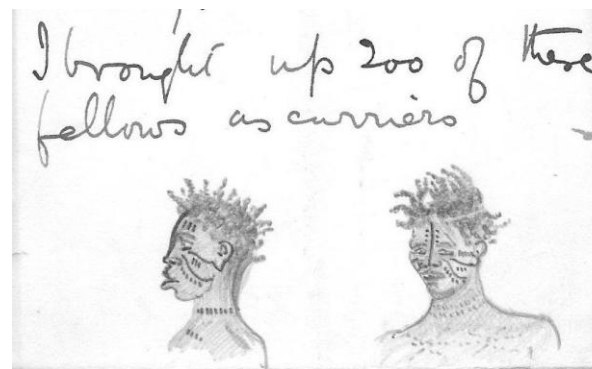 I brought up 200 of these
fellows as carriers